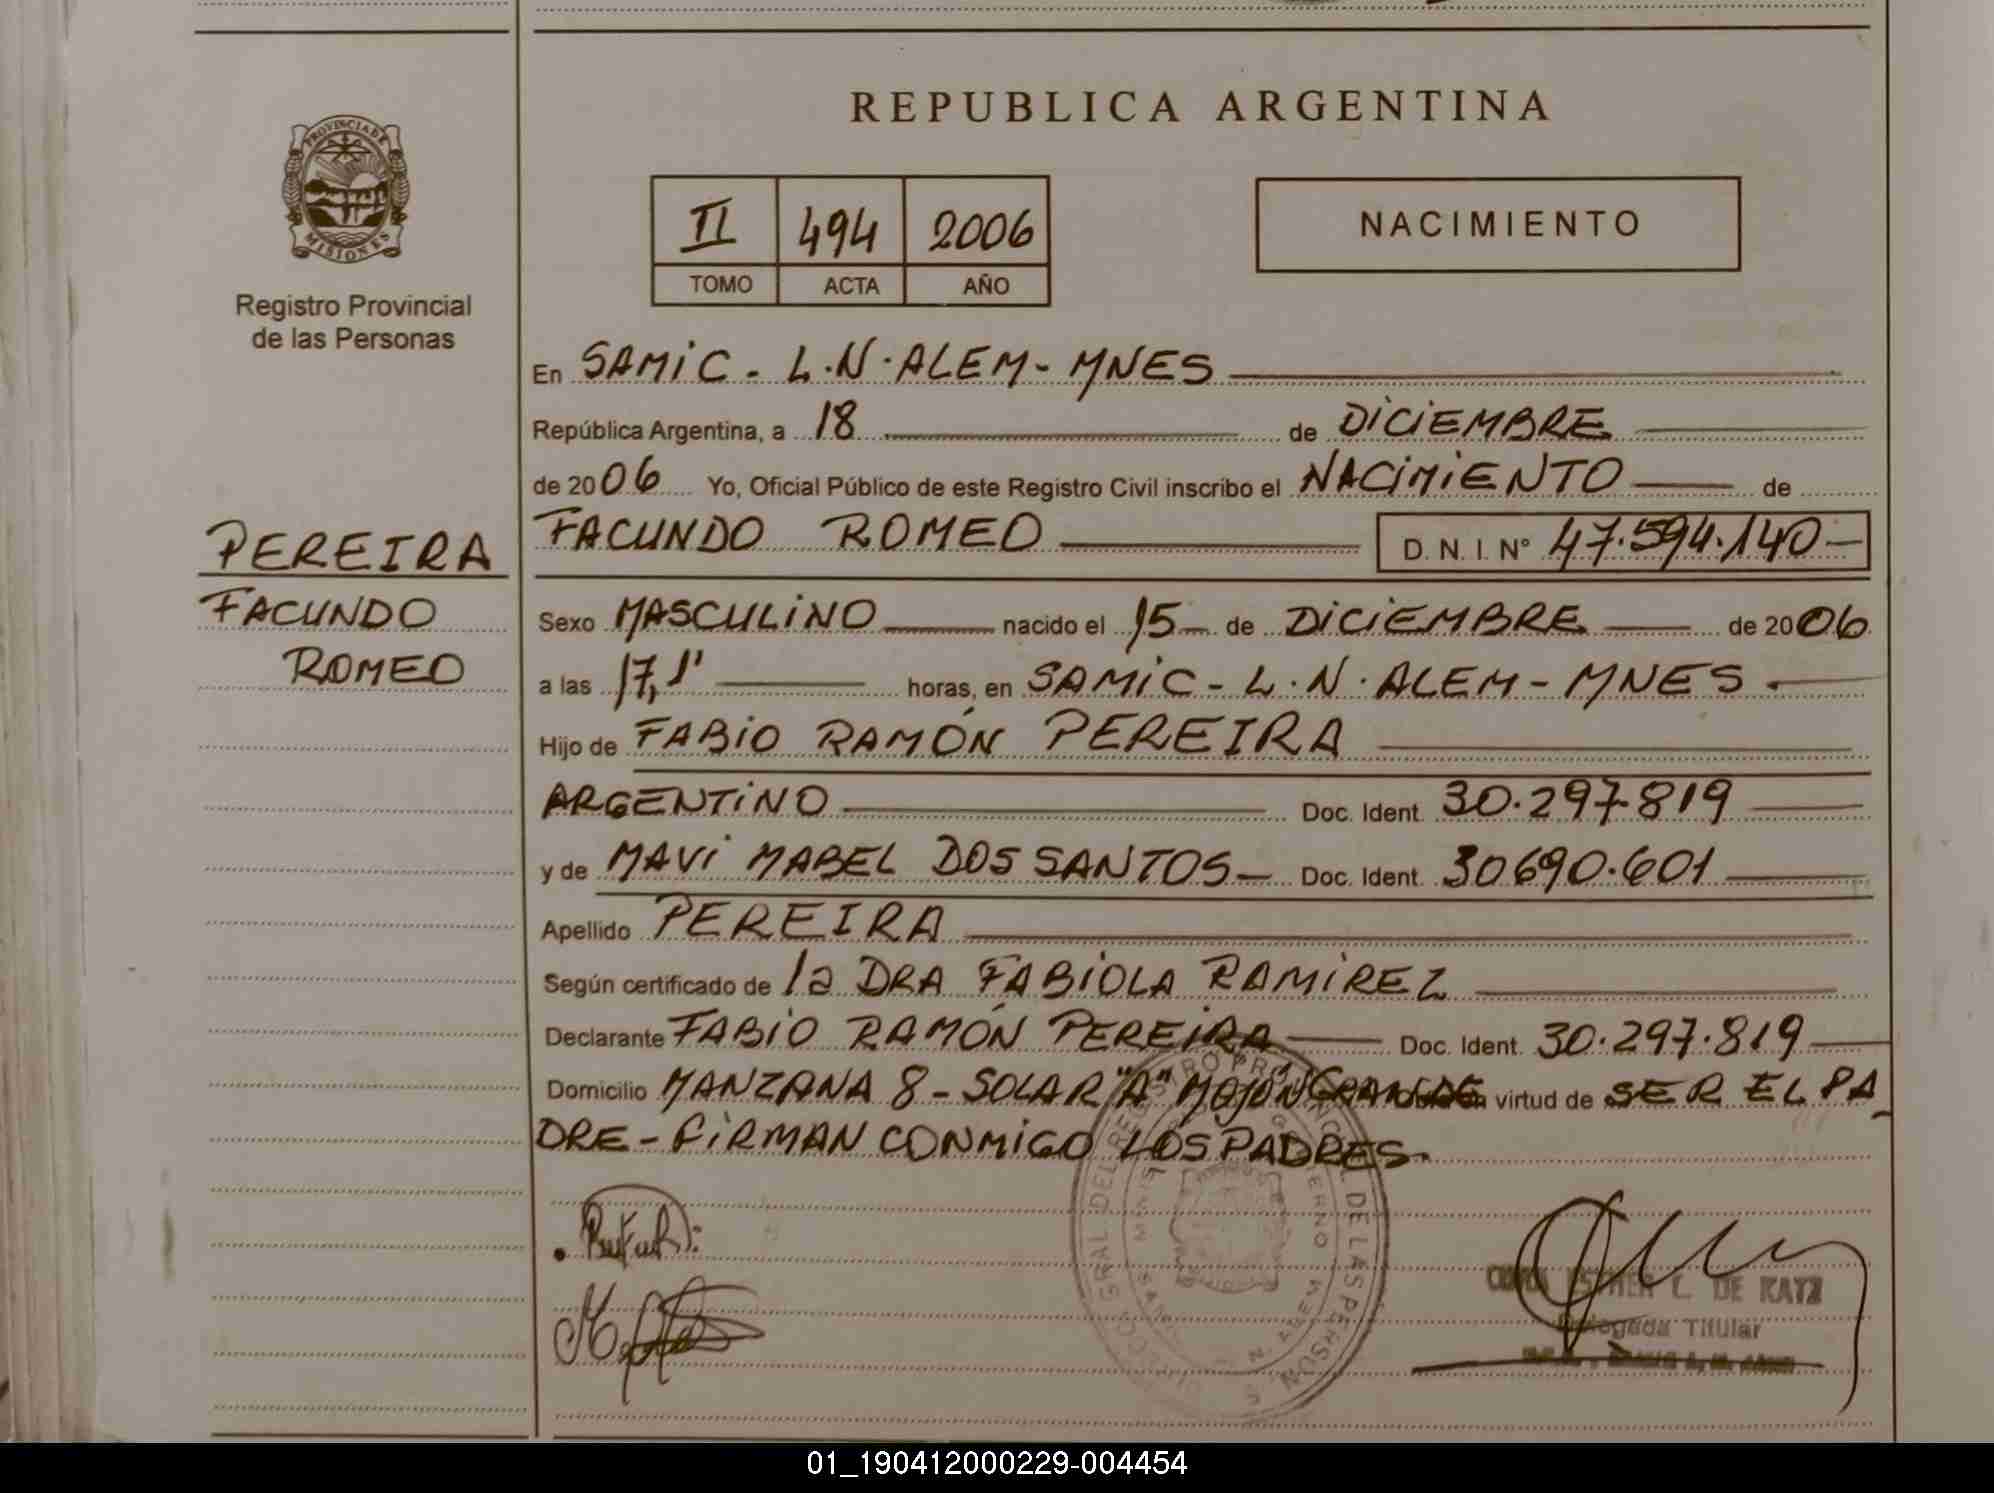 REPUBLICA ARGENTINA
PROVINCIA DE
MISIONES
Registro Provincial
de las Personas
II 494 2006
TOMO ACTA AÑO
NACIMIENTO
En SAMIC - L.N. ALEM - MNES
República Argentina, a 18 de DICIEMBRE
de 2006 Yo, Oficial Público de este Registro Civil inscribo el NACIMIENTO de
PEREIRA
FACUNDO
ROMEO
FACUNDO ROMEO D. N. I. N° 47.594.140
Sexo MASCULINO nacido el 15 de DICIEMBRE de 2006
a las 17,1' horas, en SAMIC - L.N. ALEM - MNES.
Hijo de FABIO RAMÓN PEREIRA
ARGENTINO Doc. Ident. 30.297.819
y de MAVI MABEL DOS SANTOS Doc. Ident. 30690.601
Apellido PEREIRA
Según certificado de la DRA FABIOLA RAMIREZ
Declarante FABIO RAMÓN PEREIRA Doc. Ident. 30.297.819
Domicilio MANZANA 8 - SOLAR "A" MOJÓN GRANDE virtud de SER EL PA
DRE - FIRMAN CONMIGO LOS PADRES.
ESTHER C. DE KATZ
Delegada Titular
01_190412000229-004454